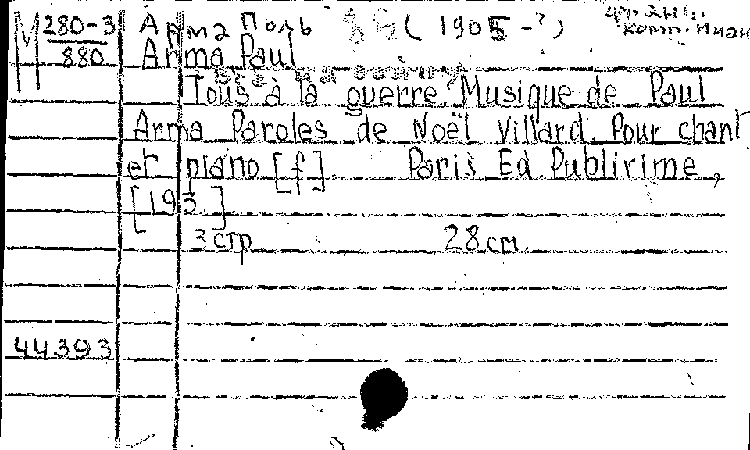 M 280-3 Арма Поль (1905-?)
880 Arma Paul
Tous à la guerre Musique de Paul
Arma Paroles de Noël Villard. Pour chant
et piano [f] Paris Ed Publirime,
[193 ]
3 стр 28 см
44393